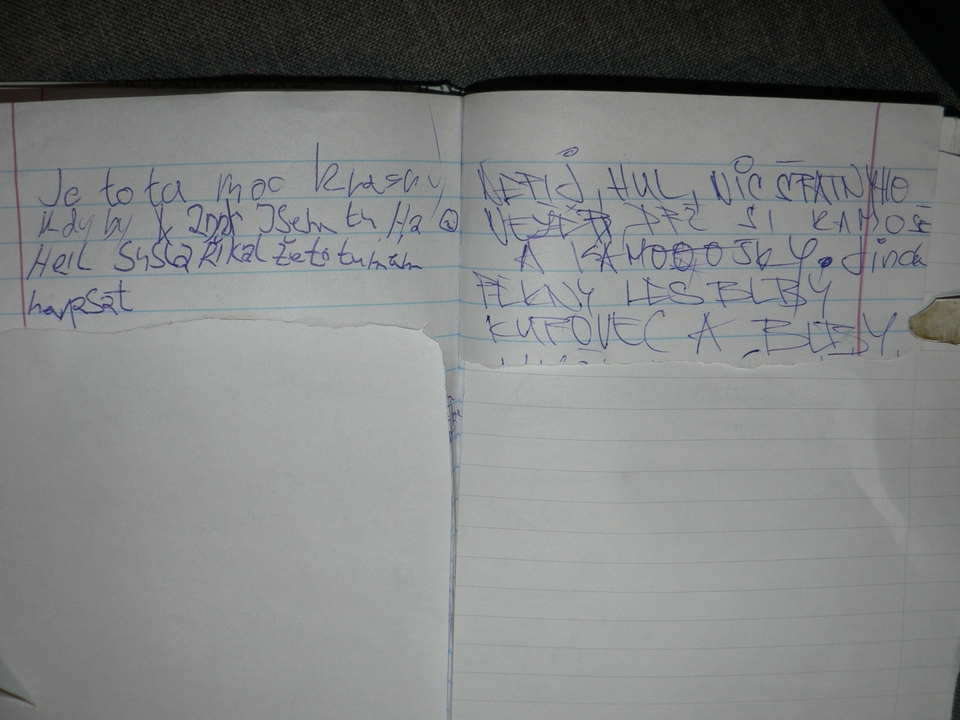 Je to ta moc krasny
kdy by jsem tu
Heil Sysla Řikal že to tu mám
napsat
NEPIJ, HUL, NIC ŠPATNYHO
SI KAMOŠE
A KAMOOOŠKY. Jinak
PEKNY LES BLBY
KUFOVEC A BLBY